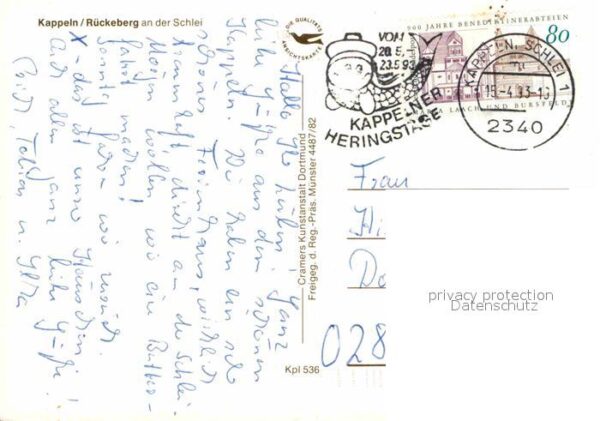 Kappeln / Rückeberg an der Schlei
DIE QUALITÄTS
ANSICHTSKARTE
VOM
20.5.
23.5.93
KAPPELNER
HERINGSTAGE
900 JAHRE BENEDIKTINERABTEIEN
80
LAACH UND BURSFELDE
KAPPELN, SCHLEI 1
15-4.93-
2340
Hallo Ihr Lieben! Ganz
liebe Grüße aus dem schönen
Kappeln. Wir haben ein sehr
schönes Ferienhaus, wirklich
traumhaft, direkt an der Schlei.
Morgen wollen wir eine Butter-
fahrt machen!
Sonnige Grüße
X - das ist unser Häuschen
Euch allen ganz liebe Grüße!
Tobias u.
Cramers Kunstanstalt Dortmund
Freigeg. d. Reg.-Präs. Münster 4487/82
Kpl 536
Frau
Hi
Do
028
privacy protection
Datenschutz